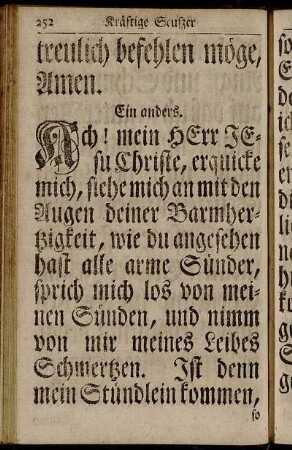 252 Kräftige Seufzer
treulich befehlen möge,
Amen.
Ein anders.
Ach! mein HErr JE-
su Christe, erquicke
mich, siehe mich an mit den
Augen deiner Barmher-
tzigkeit, wie du angesehen
hast alle arme Sünder,
sprich mich los von mei-
nen Sünden, und nimm
von mir meines Leibes
Schmertzen. Ist denn
mein Stündlein kommen,
so